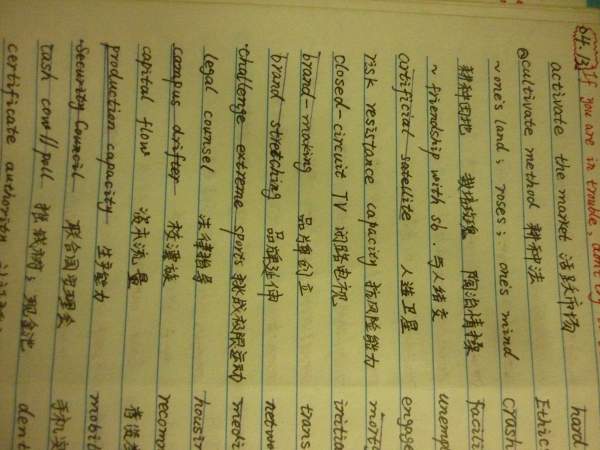 If you are in trouble, don't
activate the market 活跃市场
@cultivate method 耕种法
~one's land; roses; one's mind
耕种田地 栽培玫瑰 陶冶情操
~ friendship with sb. 与人结交
artificial satellite 人造卫星
risk resistance capacity 抗风险能力
closed-circuit TV 闭路电视
brand-making 品牌创立
brand stretching 品牌延伸
challenge extreme sports 挑战极限运动
legal counsel 法律指导
campus drifter 校漂族
capital flow 资本流量
production capacity 生产能力
Security Council 联合国安理会
cash cow//pool 摇钱树; 现金池
certificate authority
hard
Ethic
crash
facili
unemp
engage
initia
trans
netwo
medi
housin
recom
mobil
手机
dent